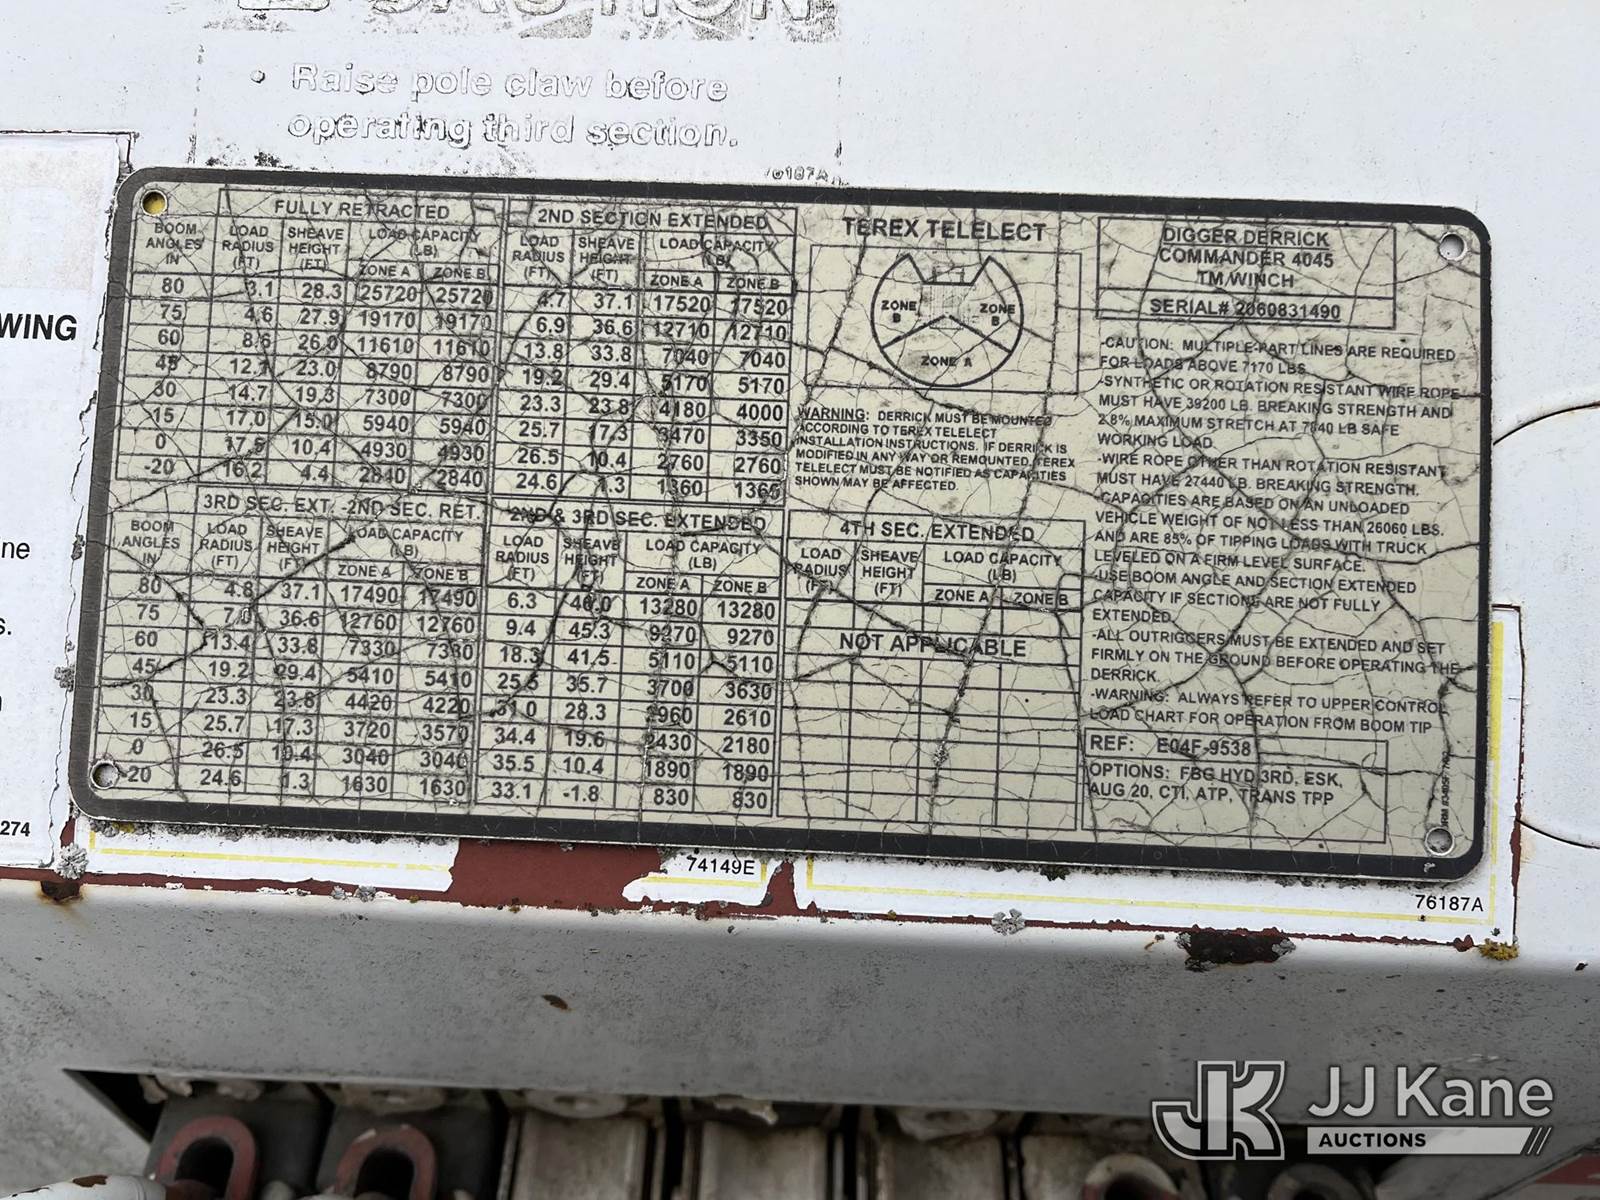 CAUTION
• Raise pole claw before
operating third section.
76187A
WING
ne
s.
274
FULLY RETRACTED
BOOM ANGLES IN LOAD RADIUS (FT) SHEAVE HEIGHT (FT) LOAD CAPACITY (LB)
ZONE A ZONE B
80 3.1 28.3 25720 25720
75 4.6 27.9 19170 19170
60 8.6 26.0 11610 11610
45 12.1 23.0 8790 8790
30 14.7 19.3 7300 7300
15 17.0 15.0 5940 5940
0 17.5 10.4 4930 4930
-20 16.2 4.4 2840 2840
2ND SECTION EXTENDED
LOAD RADIUS (FT) SHEAVE HEIGHT (FT) LOAD CAPACITY (LB)
ZONE A ZONE B
4.7 37.1 17520 17520
6.9 36.6 12710 12710
13.8 33.8 7040 7040
19.2 29.4 5170 5170
23.3 23.8 4180 4000
25.7 17.3 3470 3350
26.5 10.4 2760 2760
24.6 1.3 1360 1365
3RD SEC. EXT. -2ND SEC. RET.
BOOM ANGLES IN LOAD RADIUS (FT) SHEAVE HEIGHT (FT) LOAD CAPACITY (LB)
ZONE A ZONE B
80 4.8 37.1 17490 17490
75 7.0 36.6 12760 12760
60 13.4 33.8 7330 7330
45 19.2 29.4 5410 5410
30 23.3 23.8 4420 4220
15 25.7 17.3 3720 3570
0 26.5 10.4 3040 3040
-20 24.6 1.3 1630 1630
2ND & 3RD SEC. EXTENDED
LOAD RADIUS (FT) SHEAVE HEIGHT (FT) LOAD CAPACITY (LB)
ZONE A ZONE B
6.3 46.0 13280 13280
9.4 45.3 9270 9270
18.3 41.5 5110 5110
25.5 35.7 3700 3630
31.0 28.3 2960 2610
34.4 19.6 2430 2180
35.5 10.4 1890 1890
33.1 -1.8 830 830
TEREX TELELECT
ZONE B
ZONE B
ZONE A
WARNING: DERRICK MUST BE MOUNTED
ACCORDING TO TEREX TELELECT
INSTALLATION INSTRUCTIONS. IF DERRICK IS
MODIFIED IN ANY WAY OR REMOUNTED, TEREX
TELELECT MUST BE NOTIFIED AS CAPACITIES
SHOWN MAY BE AFFECTED.
4TH SEC. EXTENDED
LOAD RADIUS (FT) SHEAVE HEIGHT (FT) LOAD CAPACITY (LB)
ZONE A ZONE B
NOT APPLICABLE
DIGGER DERRICK
COMMANDER 4045
TM/WINCH
SERIAL# 2060831490
-CAUTION: MULTIPLE-PART LINES ARE REQUIRED
FOR LOADS ABOVE 7170 LBS
-SYNTHETIC OR ROTATION RESISTANT WIRE ROPE
MUST HAVE 39200 LB. BREAKING STRENGTH AND
2.8% MAXIMUM STRETCH AT 7840 LB SAFE
WORKING LOAD.
-WIRE ROPE OTHER THAN ROTATION RESISTANT
MUST HAVE 27440 LB. BREAKING STRENGTH.
-CAPACITIES ARE BASED ON AN UNLOADED
VEHICLE WEIGHT OF NOT LESS THAN 26060 LBS.
AND ARE 85% OF TIPPING LOADS WITH TRUCK
LEVELED ON A FIRM LEVEL SURFACE.
-USE BOOM ANGLE AND SECTION EXTENDED
CAPACITY IF SECTIONS ARE NOT FULLY
EXTENDED.
-ALL OUTRIGGERS MUST BE EXTENDED AND SET
FIRMLY ON THE GROUND BEFORE OPERATING THE
DERRICK.
-WARNING: ALWAYS REFER TO UPPER CONTROL
LOAD CHART FOR OPERATION FROM BOOM TIP
REF: E04F-9538
OPTIONS: FBG HYD 3RD, ESK,
AUG 20, CTI, ATP, TRANS TPP
74149E
76187A
JJ Kane
AUCTIONS